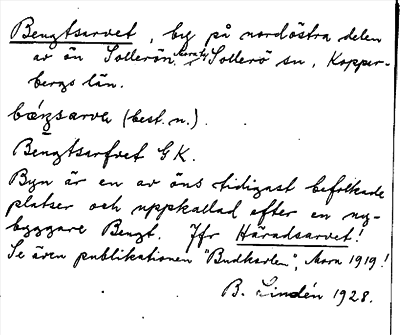 Bengtsarvet, by på nordöstra delen
av ön Sollerön, Sollerö sn, Koppar-
bergs län.
(best. n.).
Bengtsarfvet G K.
Byn är en av öns tidigast befolkade
platser och uppkallad efter en ny-
byggare Bengt. Jfr Häradsarvet!
Se även publikationen "Budkavlen", Mora 1919!
B. Lindén 1928.